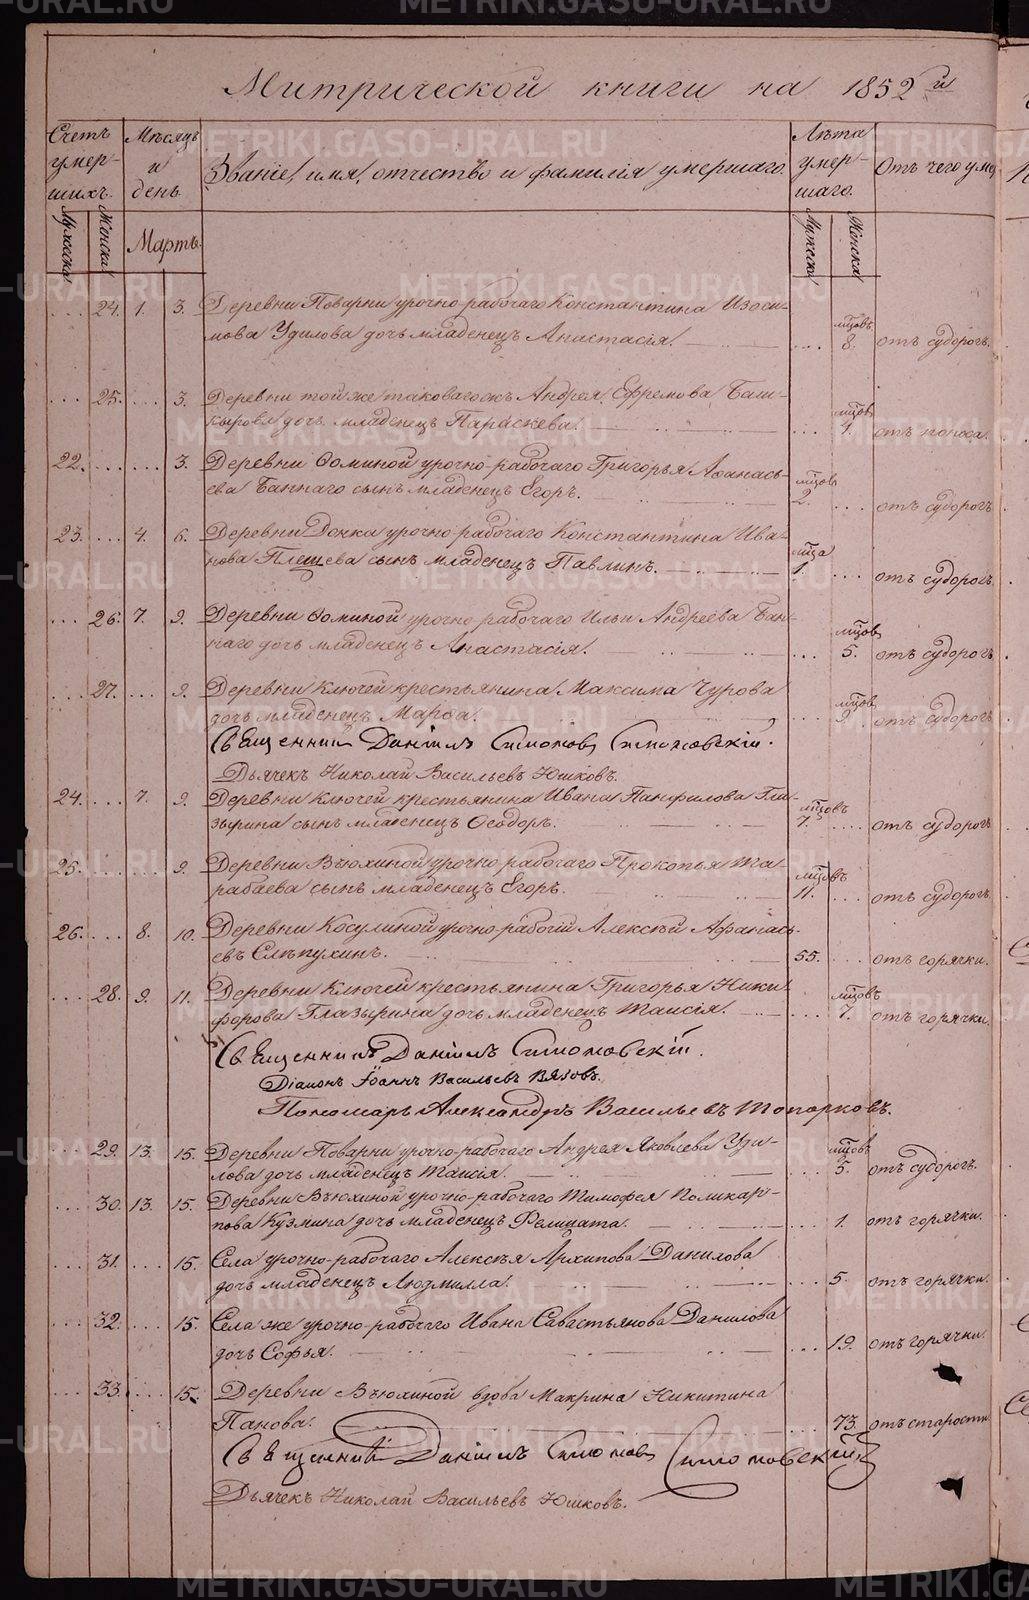 Митрической книги на 1852й
Счетъ умершихъ.
Мѣсяцъ и день.
Званіе, имя, отчество и фамилія умершаго.
Лѣта умершаго.
Отъ чего уме
Мужеска
Женска
Мартъ.
Мужеска
Женска
... 24. 1. 3. Деревни Поварни урочно-рабочаго Константина Изоси-
мова Удилова дочь младенецъ Анастасія. мцовъ 8. отъ судорогъ.
... 25. ... 3. Деревни той же таковагожъ Андрея Ефремова Баш-
кирова дочь младенецъ Параскева. мцов 1. отъ поноса.
22. ... ... 3. Деревни Ѳоминой урочно-рабочаго Григорья Аѳанась-
ева Баннаго сынъ младенецъ Егоръ. мцов 2. ... отъ судорогъ
23. ... 4. 6. Деревни Донка урочно-рабочаго Константина Ива-
нова Плещева сынъ младенецъ Павлинъ. мца 1. ... отъ судорогъ.
... 26. 7. 9. Деревни Ѳоминой урочно рабочаго Ильи Андреева Бан-
наго дочь младенецъ Анастасія. ... мцов 5. отъ судорогъ
... 27. ... 9. Деревни Ключей крестьянина Максима Чурова
дочь младенецъ Марѳа. мцов 9. отъ судорогъ
Священникъ Даніилъ Симоновъ Симоновскій.
Дьячекъ Николай Васильевъ Юшковъ.
24. ... 7. 9. Деревни Ключей крестьянина Ивана Панфилова Гла-
зырина сынъ младенецъ Ѳеодоръ. мцовъ 7. ... отъ судорогъ
25. ... ... 9. Деревни Вьюхиной урочно рабочаго Прокопья Та-
рабаева сынъ младенецъ Егоръ. мцовъ 11. ... отъ судорогъ
26. ... 8. 10. Деревни Косулиной урочно-рабочій Алексѣй Афанась-
евъ Слѣпухинъ. 55. ... отъ горячки.
... 28. 9. 11. Деревни Ключей крестьянина Григорья Ники-
форова Глазырина дочь младенецъ Таисія. ... мцовъ 7. отъ горячки.
Священникъ Даніилъ Симоновскій.
Діаконъ Іоаннъ Васильевъ Вязовъ.
Пономарь Александръ Васильевъ Топорковъ.
... 29. 13. 15. Деревни Поварни урочно-рабочаго Андрея Яковлева Уди-
лова дочь младенецъ Таисія. ... мцовъ 5. отъ судорогъ.
... 30. 13. 15. Деревни Вьюхиной урочно-рабочаго Тимофея Поликар-
пова Кузмина дочь младенецъ Фелицата. ... 1. отъ горячки.
... 31. ... 15. Села урочно-рабочаго Алексѣя Архипова Данилова
дочь младенецъ Людмилла. ... 5. отъ горячки.
... 32. ... 15. Села же урочно-рабочаго Ивана Савастьянова Данилова
дочь Софья. ... 19. отъ горячки.
... 33. ... 15. Деревни Вьюхиной вдова Макрина Никитина
Панова. 73. отъ старости
Священникъ Даніилъ Симоновъ Симоновскій
Дьячекъ Николай Васильевъ Юшковъ.
METRIKI.GASO-URAL.RU